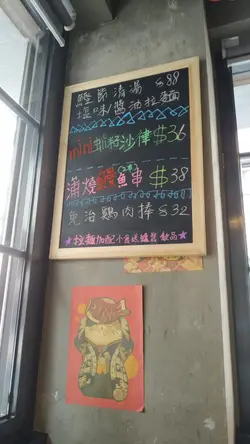 鰹節清湯 $88
塩味醬油拉麵
mini蝦籽沙律 $36
蒲燒鰻魚串 $38
免治鷄肉棒 $32
★拉麵加配小食送罐裝飲品★